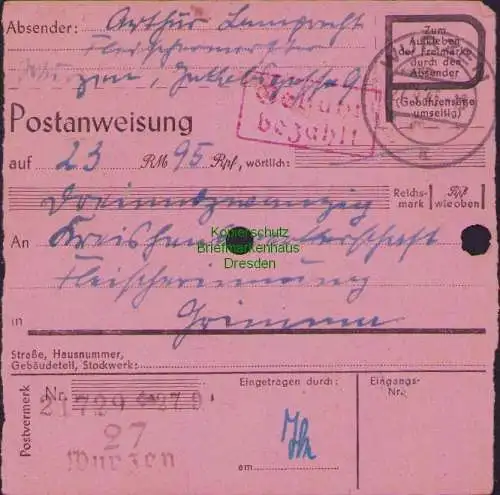 Absender: Arthur Lamprecht
Fleischermeister
Wurzen,
Zum
Aufkleben
der Freimarke
durch den
Absender
(Gebührensätze
umseitig)
Gebühr
bezahlt
Postanweisung
auf 23 RM 95 Rpf, wörtlich:
Dreiundzwanzig
Reichs-
mark
Rpf
wie oben
An Kreishandwerkerschaft
Kopierschutz
Briefmarkenhaus
Dresden
Fleischerinnung
in Grimma
Straße, Hausnummer,
Gebäudeteil, Stockwerk:
Postvermerk
Nr.
21729
27
Wurzen
Eingetragen durch:
am
Eingangs-
Nr.